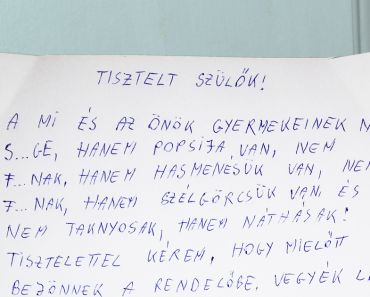 TISZTELT SZÜLŐK!
A MI ÉS AZ ÖNÖK GYERMEKEINEK
S...GE, HANEM POPSIJA VAN, NEM
F...NAK, HANEM HASMENÉSÜK VAN,
F...NAK, HANEM SZÉLGÖRCSÜK VAN, ÉS
NEM TAKNYOSAK, HANEM NÁTHÁSAK!
TISZTELETTEL KÉREM, HOGY MIELŐTT
BEJÖNNEK A RENDELŐBE, VEGYÉK